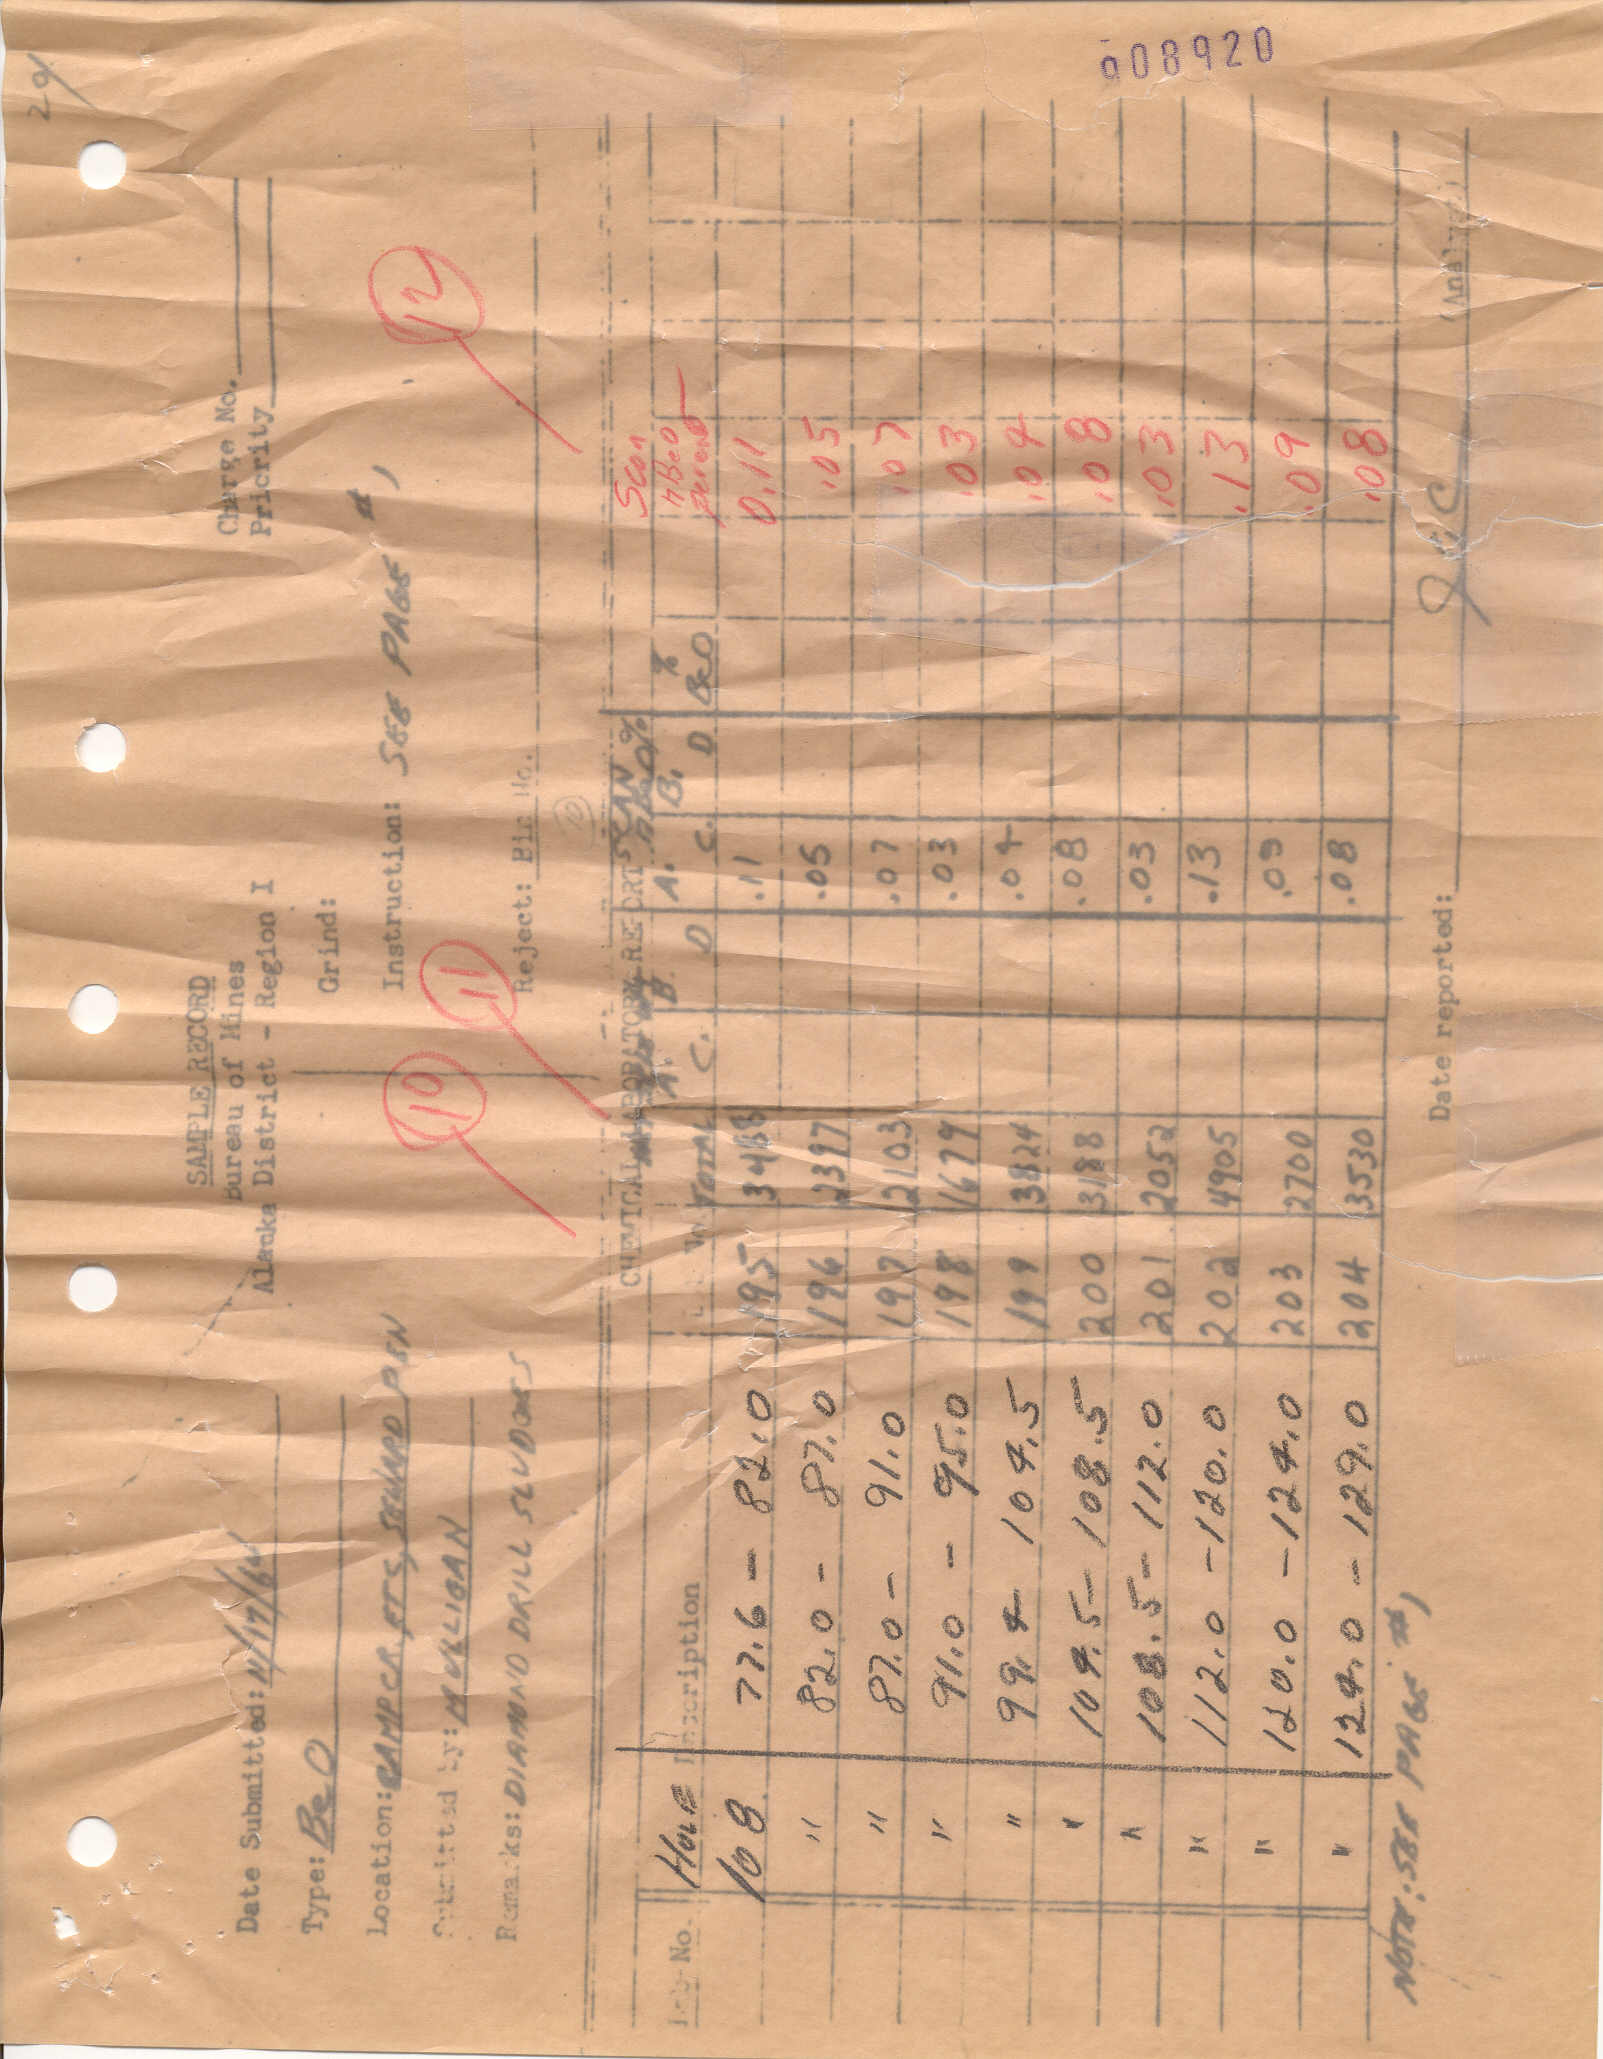 29
008920
SAMPLE RECORD
Bureau of Mines
Alaska District - Region I
Charge No.
Priority
Date Submitted: 11/17/64
Type: BeO
Grind:
Location: CAMP CR, ETS, SEWARD PEN
Instruction: SEE PAGE #1
Submitted by: MULLIGAN
10 11 12
Remarks: DIAMOND DRILL SLUDGES
Reject: Bin No.
CHEMICAL LABORATORY REPORT
SCAN
Lab No. HOLE Description TOTAL A. B. C. D A. B. C. D % BeO Scan nBeO percent
108 77.6 - 82.0 195 3488 .11 0.11
" 82.0 - 87.0 196 2397 .05 .05
" 87.0 - 91.0 197 2103 .07 .07
" 91.0 - 95.0 198 1679 .03 .03
" 99.4 104.5 199 3824 .04 .04
" 104.5 - 108.5 200 3188 .08 .08
" 108.5 - 112.0 201 2052 .03 .03
" 112.0 - 120.0 202 4905 .13 .13
" 120.0 - 124.0 203 2700 .09 .09
" 124.0 - 129.0 204 3530 .08 .08
NOTE: SEE PAGE #1
Date reported:
(Analyst)